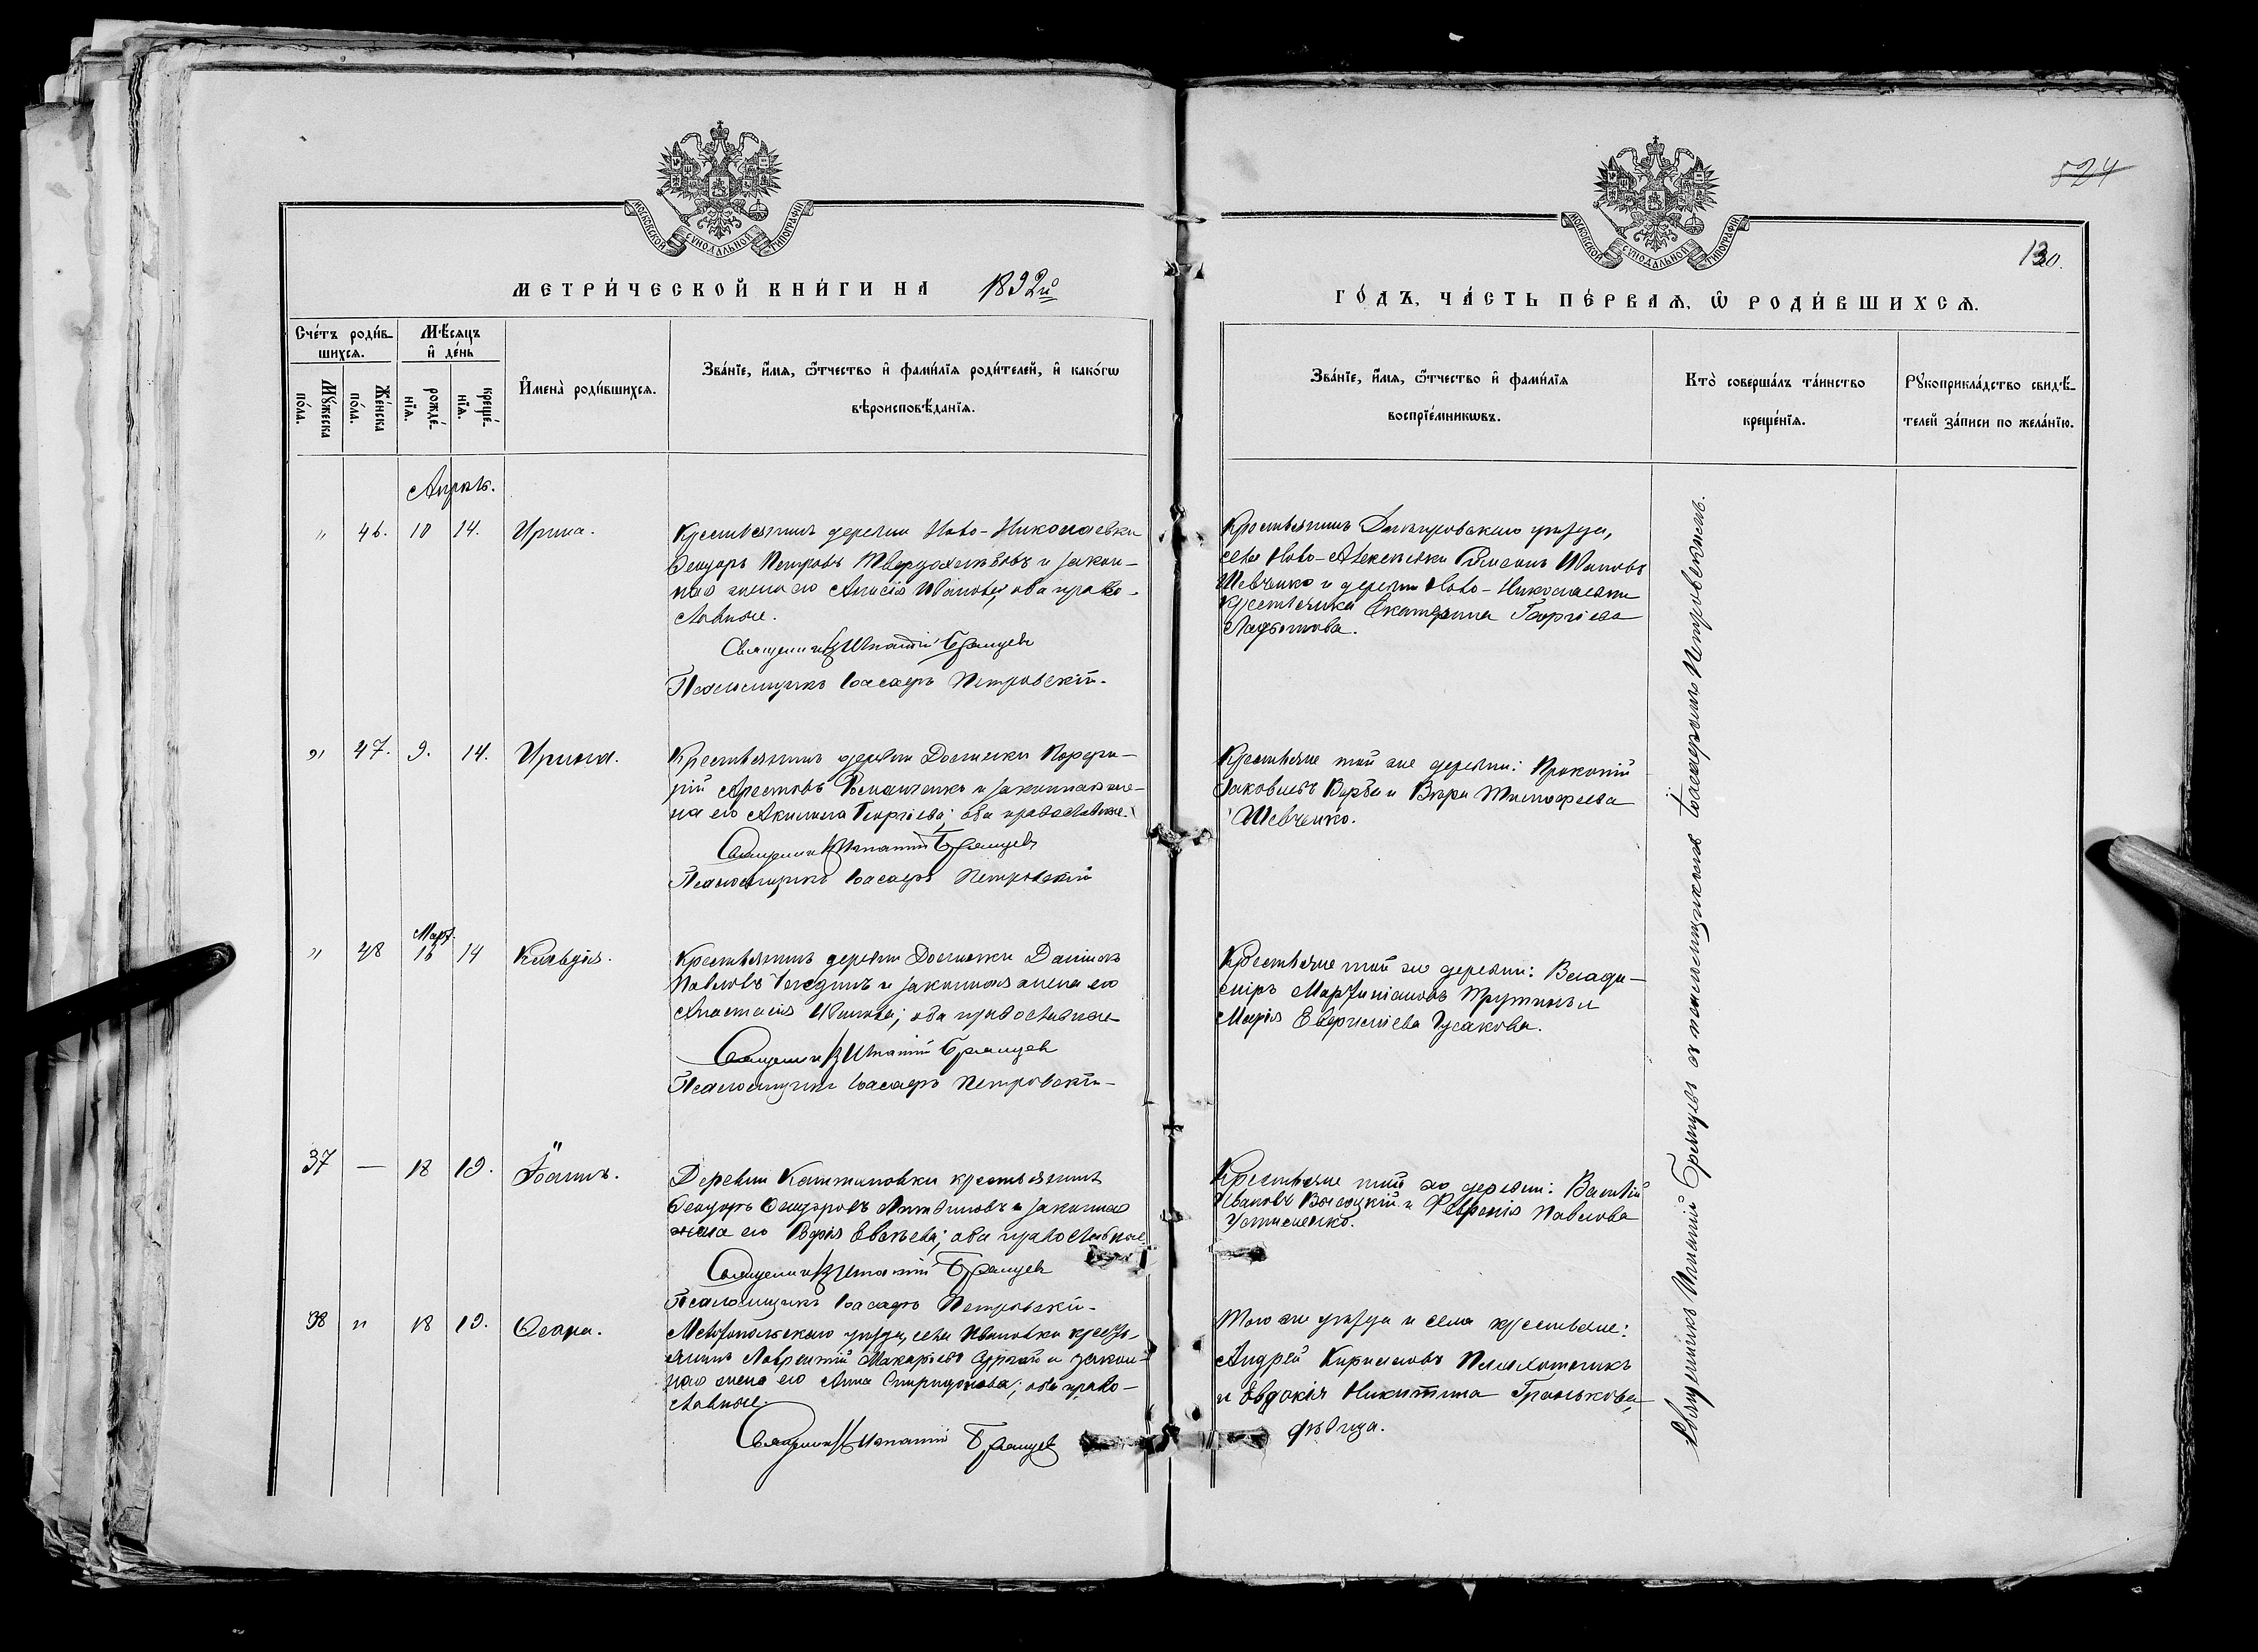 МОСКОВСКОЙ СѴНОДАЛЬНОЙ ТИПОГРАФІИ
МЕТРИ́ЧЕСКОЙ КНИ́ГИ НА 1892й
Сче́тъ роди́в-
шихсѧ.
Мꙋ́жеска
по́ла.
Же́нска
по́ла.
Мѣ́сѧцъ
и҆ де́нь
рожде́-
нїѧ.
креще́-
нїѧ.
И҆мена̀ роди́вшихсѧ.
Зва́нїе, и҆́мѧ, ѻ҆́тчество и҆ фами́лїѧ роди́телей, и҆ како́гѡ
вѣроисповѣ́данїѧ.
Апрѣль.
" 46. 10 14. Ирина.
Крестьянинъ деревни Ново-Николаевки
Ѳеодоръ Петровъ Твердохлѣбовъ и закон-
ная жена его Анисія Иванова, оба право-
славные.
Священникъ Игнатій Брянцевъ
Псаломщикъ Іоасафъ Петровскій.
" 47. 9. 14. Ирина.
Крестьянинъ деревни Досчинки Порфи-
рій Арестовъ Романченко и законная же-
на его Акилина Георгіева; оба православные.
Священникъ Игнатій Брянцевъ
Псаломщикъ Іоасафъ Петровскій
" 48 Март. 16 14 Клавдія.
Крестьянинъ деревни Досчинки Даніилъ
Павловъ и законная жена его
Анастасія Иванова; оба православные
Священникъ Игнатій Брянцевъ
Псаломщикъ Іоасафъ Петровскій
37 — 18 19. Іоаннъ.
Деревни Константиновки крестьянинъ
Ѳеодоръ Ѳеодоровъ Литвиновъ и законная
жена его Евсѣева; оба православные
Священникъ Игнатій Брянцевъ
Псаломщикъ Іоасафъ Петровскій
38 " 18 19. Ѳеодоръ.
Мелитопольскаго уѣзда, села Ивановки кресть-
янинъ Лаврентій Макаріевъ и закон-
ная жена его Анна Спиридонова; оба право-
славные.
Священникъ Игнатій Брянцевъ
524
МОСКОВСКОЙ СѴНОДАЛЬНОЙ ТИПОГРАФІИ
130.
ГО́ДЪ, ЧА́СТЬ ПЕ́РВАѦ, Ѡ҆ РОДИ́ВШИХСѦ.
Зва́нїе, и҆́мѧ, ѻ҆́тчество и҆ фами́лїѧ
воспрїе́мникѡвъ.
Кто̀ соверша́лъ та́инство
креще́нїѧ.
Рꙋкоприкла́дство свидѣ́-
телей за́писи по жела́нїю.
Крестьянинъ Днѣпровскаго уѣзда,
села Ново-Алексѣевки Ивановъ
Шевченко и деревни Ново-Николаевки
крестьянка Екатерина Георгіева
Крестьяне той же деревни: Прокопій
Іаковлевъ Верба и Вѣра Тимофеева
Шевченко.
Крестьяне той же деревни: Влади-
миръ Мартиніановъ и
Марія Гусакова.
Крестьяне той же деревни: Василій
Ивановъ Высоцкій и Февронія Павлова
Устименко.
Того же уѣзда и села крестьяне:
Андрей Кирилловъ
и Евдокія Никитина Гранькова,
дѣвица.
Священникъ Игнатій Брянцевъ съ псаломщикомъ Іоасафомъ Петровскимъ.